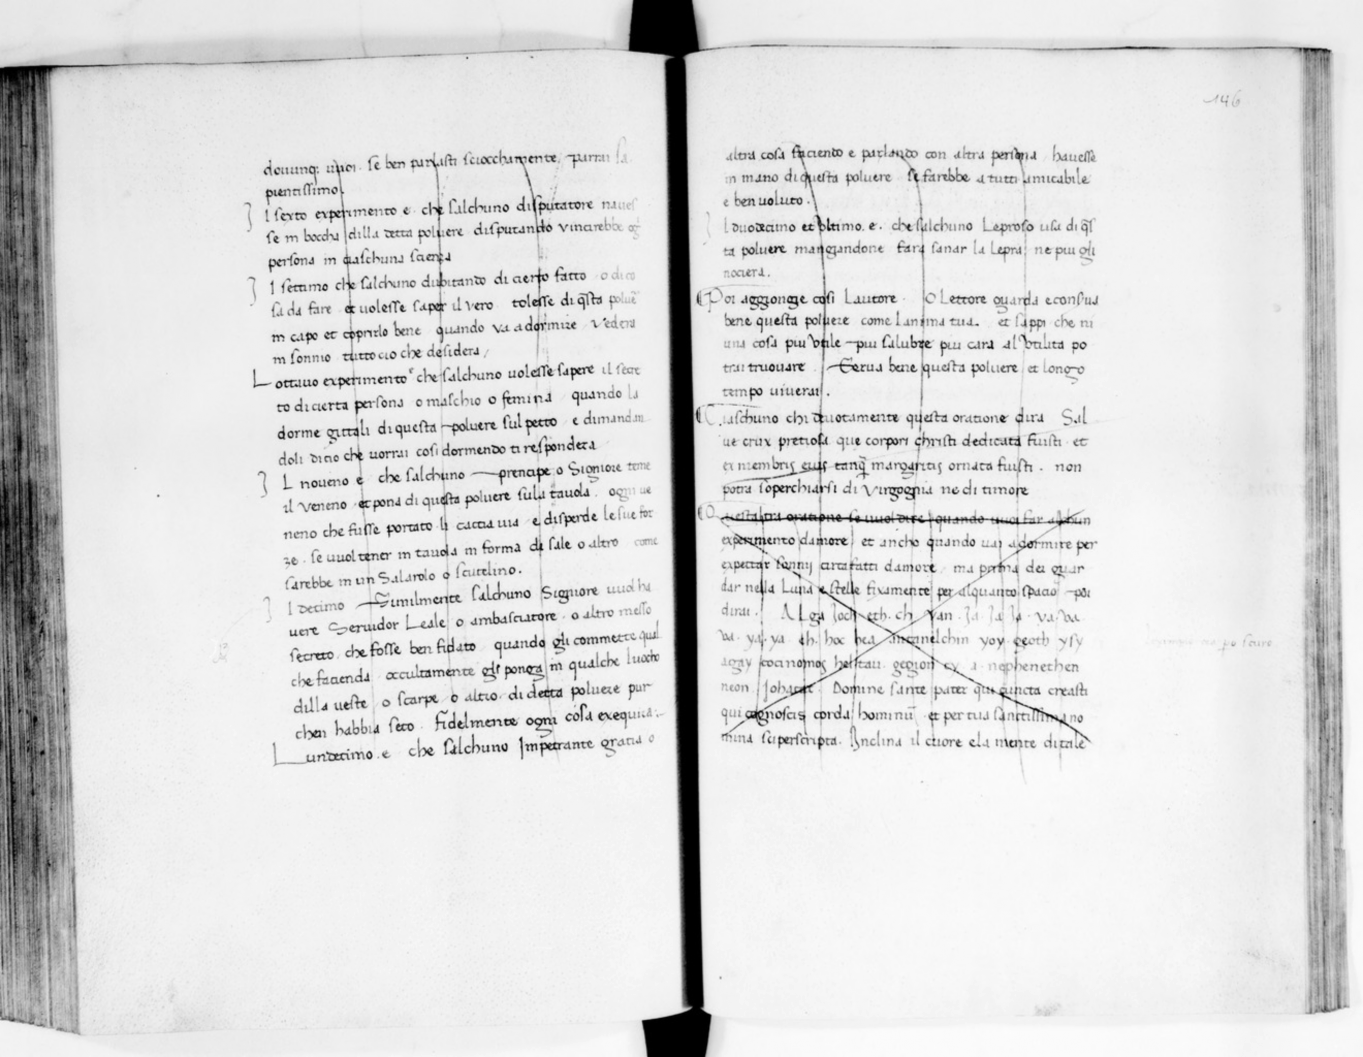 dovunq; vuoi. Se ben parlasti sciocchamente, parrai sa
pientissimo.
Il sexto experimento e che salchuno disputatore haues
se in boccha dilla detta poluere disputando vincirebbe og
persona in ciaschuna scienza
Il settimo che salchuno dubitando di cierto fatto o di co
sa da fare et uolesse saper il vero tolesse di q̃sta poluẽ
in capo et coprirlo bene quando va a dormire vedera
in sonnio tutto cio che desidera
Lottauo experimento e che salchuno uolesse sapere il secre
to di cierta persona o maschio o femina quando la
dorme gittali di questa poluere sul petto e dimandan
doli di cio che uorrai cosi dormendo ti respondera
Il noueno e che salchuno prencipe o Signiore teme
il veneno et pona di questa poluere sula tauola. ogni ue
neno che fusse portato li caccia uia e disperde le sue for
ze. se uuol tener in tauola in forma di sale o altro come
sarebbe in un Salarolo o scutelino.
Il decimo Similmente salchuno Signiore uuol ha
uere Seruidor Leale o ambasciatore o altro messo
secreto che fosse ben fidato quando gli commette qual
che facienda occultamente gli ponga in qualche luocho
dilla ueste o scarpe o altro di detta poluere pur
chen habbia seco. fidelmente ogni cosa exequira.
Lundecimo e che salchuno Impetrante gratia o
146
altra cosa faciendo e parlando con altra persona hauesse
in mano di questa poluere se farebbe a tutti amicabile
e ben voluto.
Il duodecimo et vltimo. e. che salchuno Leproso usa di q̃s
ta poluere mangiandone fara sanar la Lepra: ne piu gli
nociera.
Poi aggionge cosi Lautore. O Lettore guarda e conserua
bene questa poluere come Lanima tua. et sappi che ni
una cosa piu vtile piu salubre piu cara al vtilita po
trai truouare. Serua bene questa poluere et longo
tempo viuerai.
Ciaschuno chi deuotamente questa oratione dira Sal
ue crux pretiosa que corpori christi dedicata fuisti et
ex membris eius tanq̃ margaritis ornata fuisti. non
potra soperchiarsi di Virgognia ne di timore
Questaltra oratione se vuol dire quando uuoi far alchun
experimento damore et ancho quando vai a dormire per
expectar sonnij circa fatti damore ma prima dei guar
dar nella Luna e stelle fixamente per alquanto spacio poi
dirai. ALga Joch. eth. ch. van. Ja Ja Ja. va. va.
va. ya. ya. eh. hoc hea ancanelchin yoy geoth ysy
agay cocinomos helitau. gegion ey a nephenethen
neon Domine sante pater qui cuncta creasti
qui cognoscis corda hominũ et per tua sanctissima no
mina superscripta. Inclina il cuore e la mente di tale